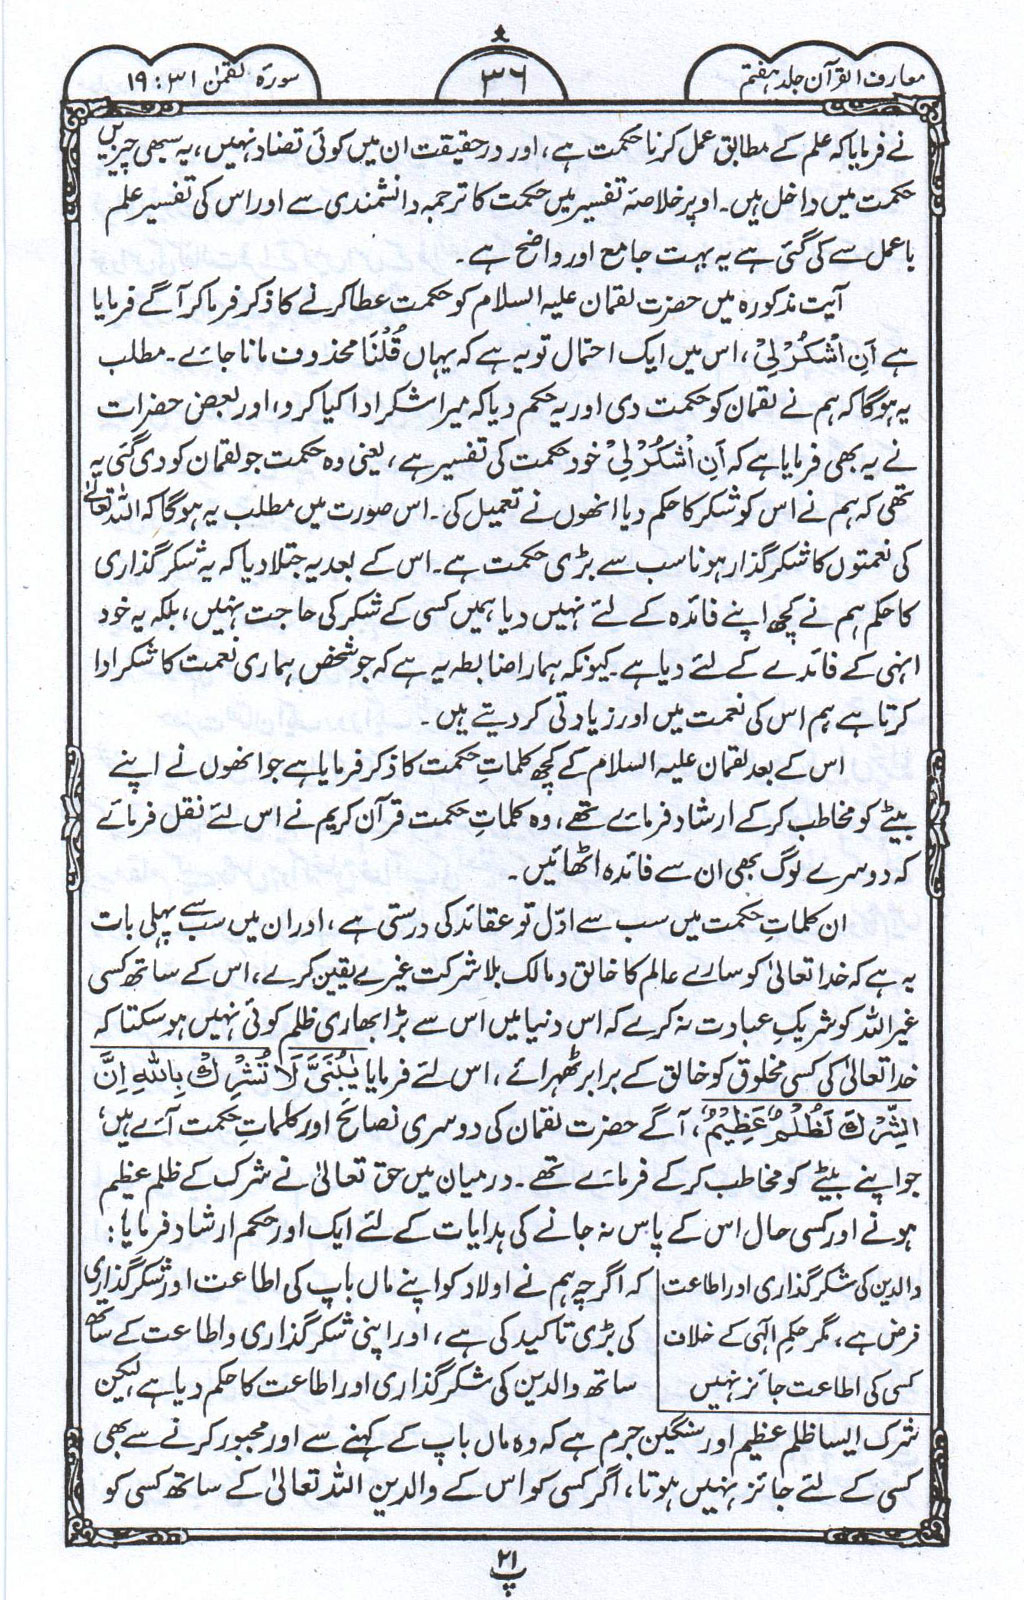 معارف القرآن جلد ہفتم
۳۶
سورۃ لقمٰن ۳۱ : ۱۹
نے فرمایا کہ علم کے مطابق عمل کرنا حکمت ہے، اور درحقیقت ان میں کوئی تضاد نہیں، یہ سبھی چیزیں
حکمت میں داخل ہیں۔ اوپر خلاصۂ تفسیر میں حکمت کا ترجمہ دانشمندی سے اور اس کی تفسیر علم
با عمل سے کی گئی ہے یہ بہت جامع اور واضح ہے۔
آیت مذکورہ میں حضرت لقمان علیہ السلام کو حکمت عطا کرنے کا ذکر فرما کر آگے فرمایا
ہے اَنِ اشْکُرْ لِیْ، اس میں ایک احتمال تو یہ ہے کہ یہاں قُلْنَا محذوف مانا جائے۔ مطلب
یہ ہوگا کہ ہم نے لقمان کو حکمت دی اور یہ حکم دیا کہ میرا شکر ادا کیا کرو، اور بعض حضرات
نے یہ بھی فرمایا ہے کہ اَنِ اشْکُرْ لِیْ خود حکمت کی تفسیر ہے، یعنی وہ حکمت جو لقمان کو دی گئی یہ
تھی کہ ہم نے اس کو شکر کا حکم دیا انھوں نے تعمیل کی۔ اس صورت میں مطلب یہ ہوگا کہ اللہ تعالیٰ
کی نعمتوں کا شکر گذار ہونا سب سے بڑی حکمت ہے۔ اس کے بعد یہ جتلا دیا کہ یہ شکر گذاری
کا حکم ہم نے کچھ اپنے فائدہ کے لئے نہیں دیا ہمیں کسی کے شکر کی حاجت نہیں، بلکہ یہ خود
انہی کے فائدے کے لئے دیا ہے۔ کیونکہ ہمارا ضابطہ یہ ہے کہ جو شخص ہماری نعمت کا شکر ادا
کرتا ہے ہم اس کی نعمت میں اور زیادتی کر دیتے ہیں۔
اس کے بعد لقمان علیہ السلام کے کچھ کلماتِ حکمت کا ذکر فرمایا ہے جو انھوں نے اپنے
بیٹے کو مخاطب کر کے ارشاد فرمائے تھے، وہ کلماتِ حکمت قرآن کریم نے اس لئے نقل فرمائے
کہ دوسرے لوگ بھی ان سے فائدہ اٹھائیں۔
ان کلماتِ حکمت میں سب سے اوّل تو عقائد کی درستی ہے، اور ان میں سب سے پہلی بات
یہ ہے کہ خدا تعالیٰ کو سارے عالم کا خالق و مالک بلا شرکت غیرے یقین کرے، اس کے ساتھ کسی
غیر اللہ کو شریکِ عبادت نہ کرے کہ اس دنیا میں اس سے بڑا بھاری ظلم کوئی نہیں ہو سکتا کہ
خدا تعالیٰ کی کسی مخلوق کو خالق کے برابر ٹھہرائے، اس لئے فرمایا یٰبُنَیَّ لَا تُشْرِكْ بِاللّٰهِ اِنَّ
الشِّرْكَ لَظُلْمٌ عَظِيْمٌ، آگے حضرت لقمان کی دوسری نصائح اور کلماتِ حکمت آئے ہیں،
جو اپنے بیٹے کو مخاطب کر کے فرمائے تھے۔ درمیان میں حق تعالیٰ نے شرک کے ظلم عظیم
ہونے اور کسی حال اس کے پاس نہ جانے کی ہدایات کے لئے ایک اور حکم ارشاد فرمایا:
والدین کی شکر گذاری اور اطاعت
فرض ہے، مگر حکمِ الٰہی کے خلاف
کسی کی اطاعت جائز نہیں
کہ اگرچہ ہم نے اولاد کو اپنے ماں باپ کی اطاعت اور شکر گذاری
کی بڑی تاکید کی ہے، اور اپنی شکر گذاری و اطاعت کے ساتھ
ساتھ والدین کی شکر گذاری اور اطاعت کا حکم دیا ہے لیکن
شرک ایسا ظلم عظیم اور سنگین جرم ہے کہ وہ ماں باپ کے کہنے سے اور مجبور کرنے سے بھی
کسی کے لئے جائز نہیں ہوتا، اگر کسی کو اس کے والدین اللہ تعالیٰ کے ساتھ کسی کو
۲۱
پ